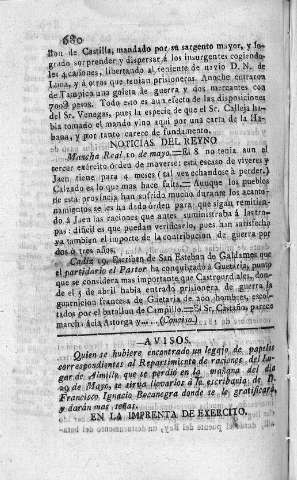 680
llon de Castilla, mandado por su sargento mayor, y lo-
grado sorprender y dispersar á los insurgentes cogiendo-
les 4 cañones, libertando al teniente de navio D. N. de
Luna, y á otros que tenian prisioneros. Anoche entraron
de Tampico una goleta de guerra y dos mercantes con
700 pesos. Todo esto es aun efecto de las disposiciones
del Sr. Venegas, pues la especie de que el Sr. Calleja ha-
bia tomado el mando vino aqui por una carta de la Ha-
bana, y por tanto carece de fundamento.
NOTICIAS DEL REYNO
Mancha Real 10 de mayo.=El 8 no tenia aun el
tercer exército órden de moverse: está escaso de viveres y
Jaen tiene para 4 meses (tal vez echandose á perder.)
Calzado es lo que mas hace falta.= Aunque los pueblos
de esta provincia han sufrido mucho durante los acanto-
namientos se les ha dado órden para que sigan remitien-
do á Jaen las raciones que antes suministraba á las tro-
pas: dificil es que puedan verificarlo, pues han satisfecho
ya tambien el importe de la contribucion de guerra por
dos ó tres años.
Cadiz 19. Escriben de San Esteban de Galdames que
el partidario el Pastor ha conquistado á Guetaria, punto
que se considera mas importante que Castrourdiales, don-
de el 3 de abril habia entrado prisionera de guerra la
guarnicion francesa de Guetaria de 200 hombres, escol-
tados por el batallon de Campillo.=El Sr. Castaños, parece
marcha ácia Astorga y.... (Conciso.)
—AVISOS.
Quien se hubiere encontrado un legajo de papeles
correspondientes al Repartimiento de raciones del Lu-
gar de Almilla que se perdió en la mañana del dia
29 de Mayo, se sirva llevarlos á la escribania de D.
Francisco Ignacio Bocanegra donde se le gratificará
y darán mas señas.
EN LA IMPRENTA DE EXERCITO.